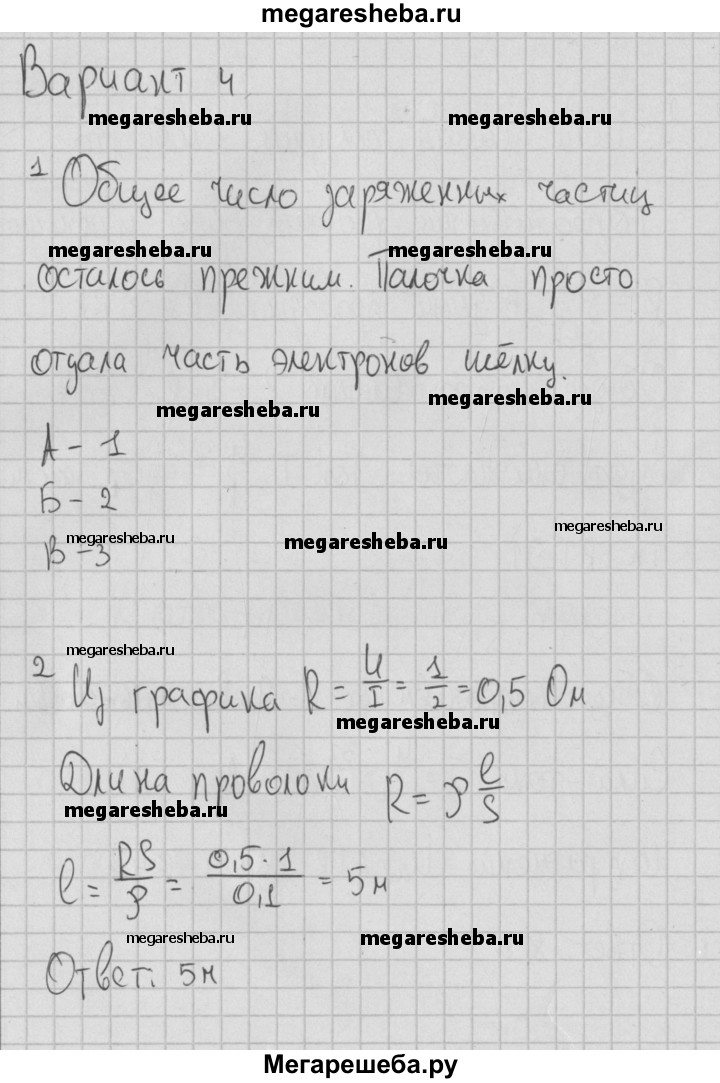 megaresheba.ru
Вариант 4
megaresheba.ru megaresheba.ru
1 Общее число заряженных частиц
megaresheba.ru megaresheba.ru
осталось прежним. Палочка просто
отдала часть электронов шёлку.
megaresheba.ru megaresheba.ru
А - 1
Б - 2
megaresheba.ru megaresheba.ru megaresheba.ru
В - 3
megaresheba.ru
2 Из графика R = U/I = 1/2 = 0,5 Ом
megaresheba.ru
Длина проволоки R = ρ l/S
megaresheba.ru
l = RS/ρ = 0,5·1/0,1 = 5м
megaresheba.ru megaresheba.ru
Ответ: 5м
Мегарешеба.ру